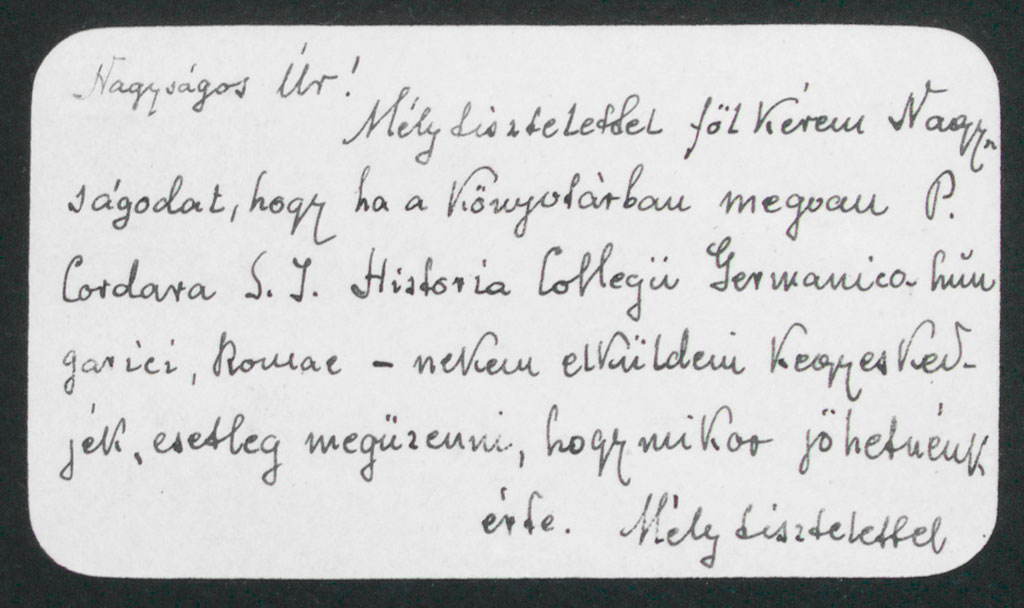 Nagyságos Úr!
Mély tisztelettel föl kérem Nagy-
ságodat, hogy ha a Könyvtárban megvan P.
Cordara S. J. Historia Collegii Germanico-hun
garici, Romae – nekem elküldeni kegyesked-
jék, esetleg megüzenni, hogy mikor jöhetnénk
érte. Mély tisztelettel